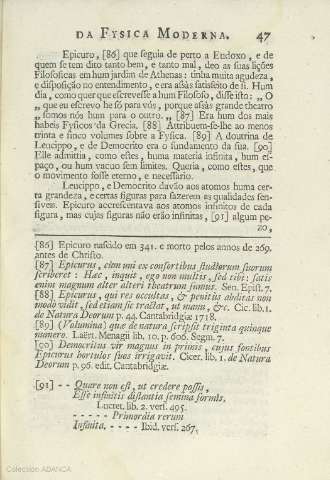 DA FYSICA MODERNA. 47
Epicuro, [86] que seguia de perto a Eudoxo, e de
quem se tem dito tanto bem, e tanto mal, deo as suas lições
Filosoficas em hum jardim de Athenas: tinha muita agudeza,
e disposição no entendimento, e era assás satisfeito de si. Hum
dia, como quer que escrevesse a hum Filosofo, disse isto: „ O
„ que eu escrevo he só para vós, porque assás grande theatro
„ somos nós hum para o outro. „ [87] Era hum dos mais
habeis Fysicos da Grecia. [88] Attribuem-se-lhe ao menos
trinta e sinco volumes sobre a Fysica. [89] A doutrina de
Leucippo, e de Democrito era o fundamento da sua. [90]
Elle admittia, como estes, huma materia infinita, hum es-
paço, ou hum vacuo sem limites. Queria, como estes, que
o movimento fosse eterno, e necessario.
Leucippo, e Democrito davão aos atomos huma cer-
ta grandeza, e certas figuras para fazerem as qualidades sen-
siveis. Epicuro accrescentava aos atomos infinitos de cada
figura, mas cujas figuras não erão infinitas, [91] algum pe-
zo,
[86] Epicuro nascido em 341. e morto pelos annos de 269.
antes de Christo.
[87] Epicurus, cùm uni ex consortibus studiorum suorum
scriberet: Hæc, inquit, ego non multis, sed tibi: satis
enim magnum alter alteri theatrum sumus. Sen. Epist. 7.
[88] Epicurus, qui res occultas, & penitùs abditas non
modò vidit, sed etiam sic tractat, ut manu, &c. Cic. lib. 1.
de Natura Deorum p. 44. Cantabridgiæ 1718.
[89] (Volumina) quæ de natura scripsit triginta quinque
numero. Laërt. Menagii lib. 10. p. 606. Segm. 7.
[90] Democritus vir magnus in primis, cujus fontibus
Epicurus hortulos suos irrigavit. Cicer. lib. 1. de Natura
Deorum p. 96. edit. Cantabridgiæ.
[91] - - Quare non est, ut credere possis,
Esse infinitis distantia semina formis.
Lucret. lib. 2. vers. 495.
- - - - - Primordia rerum
Infinita. - - - - Ibid. vers. 267.
Colección ABANCA